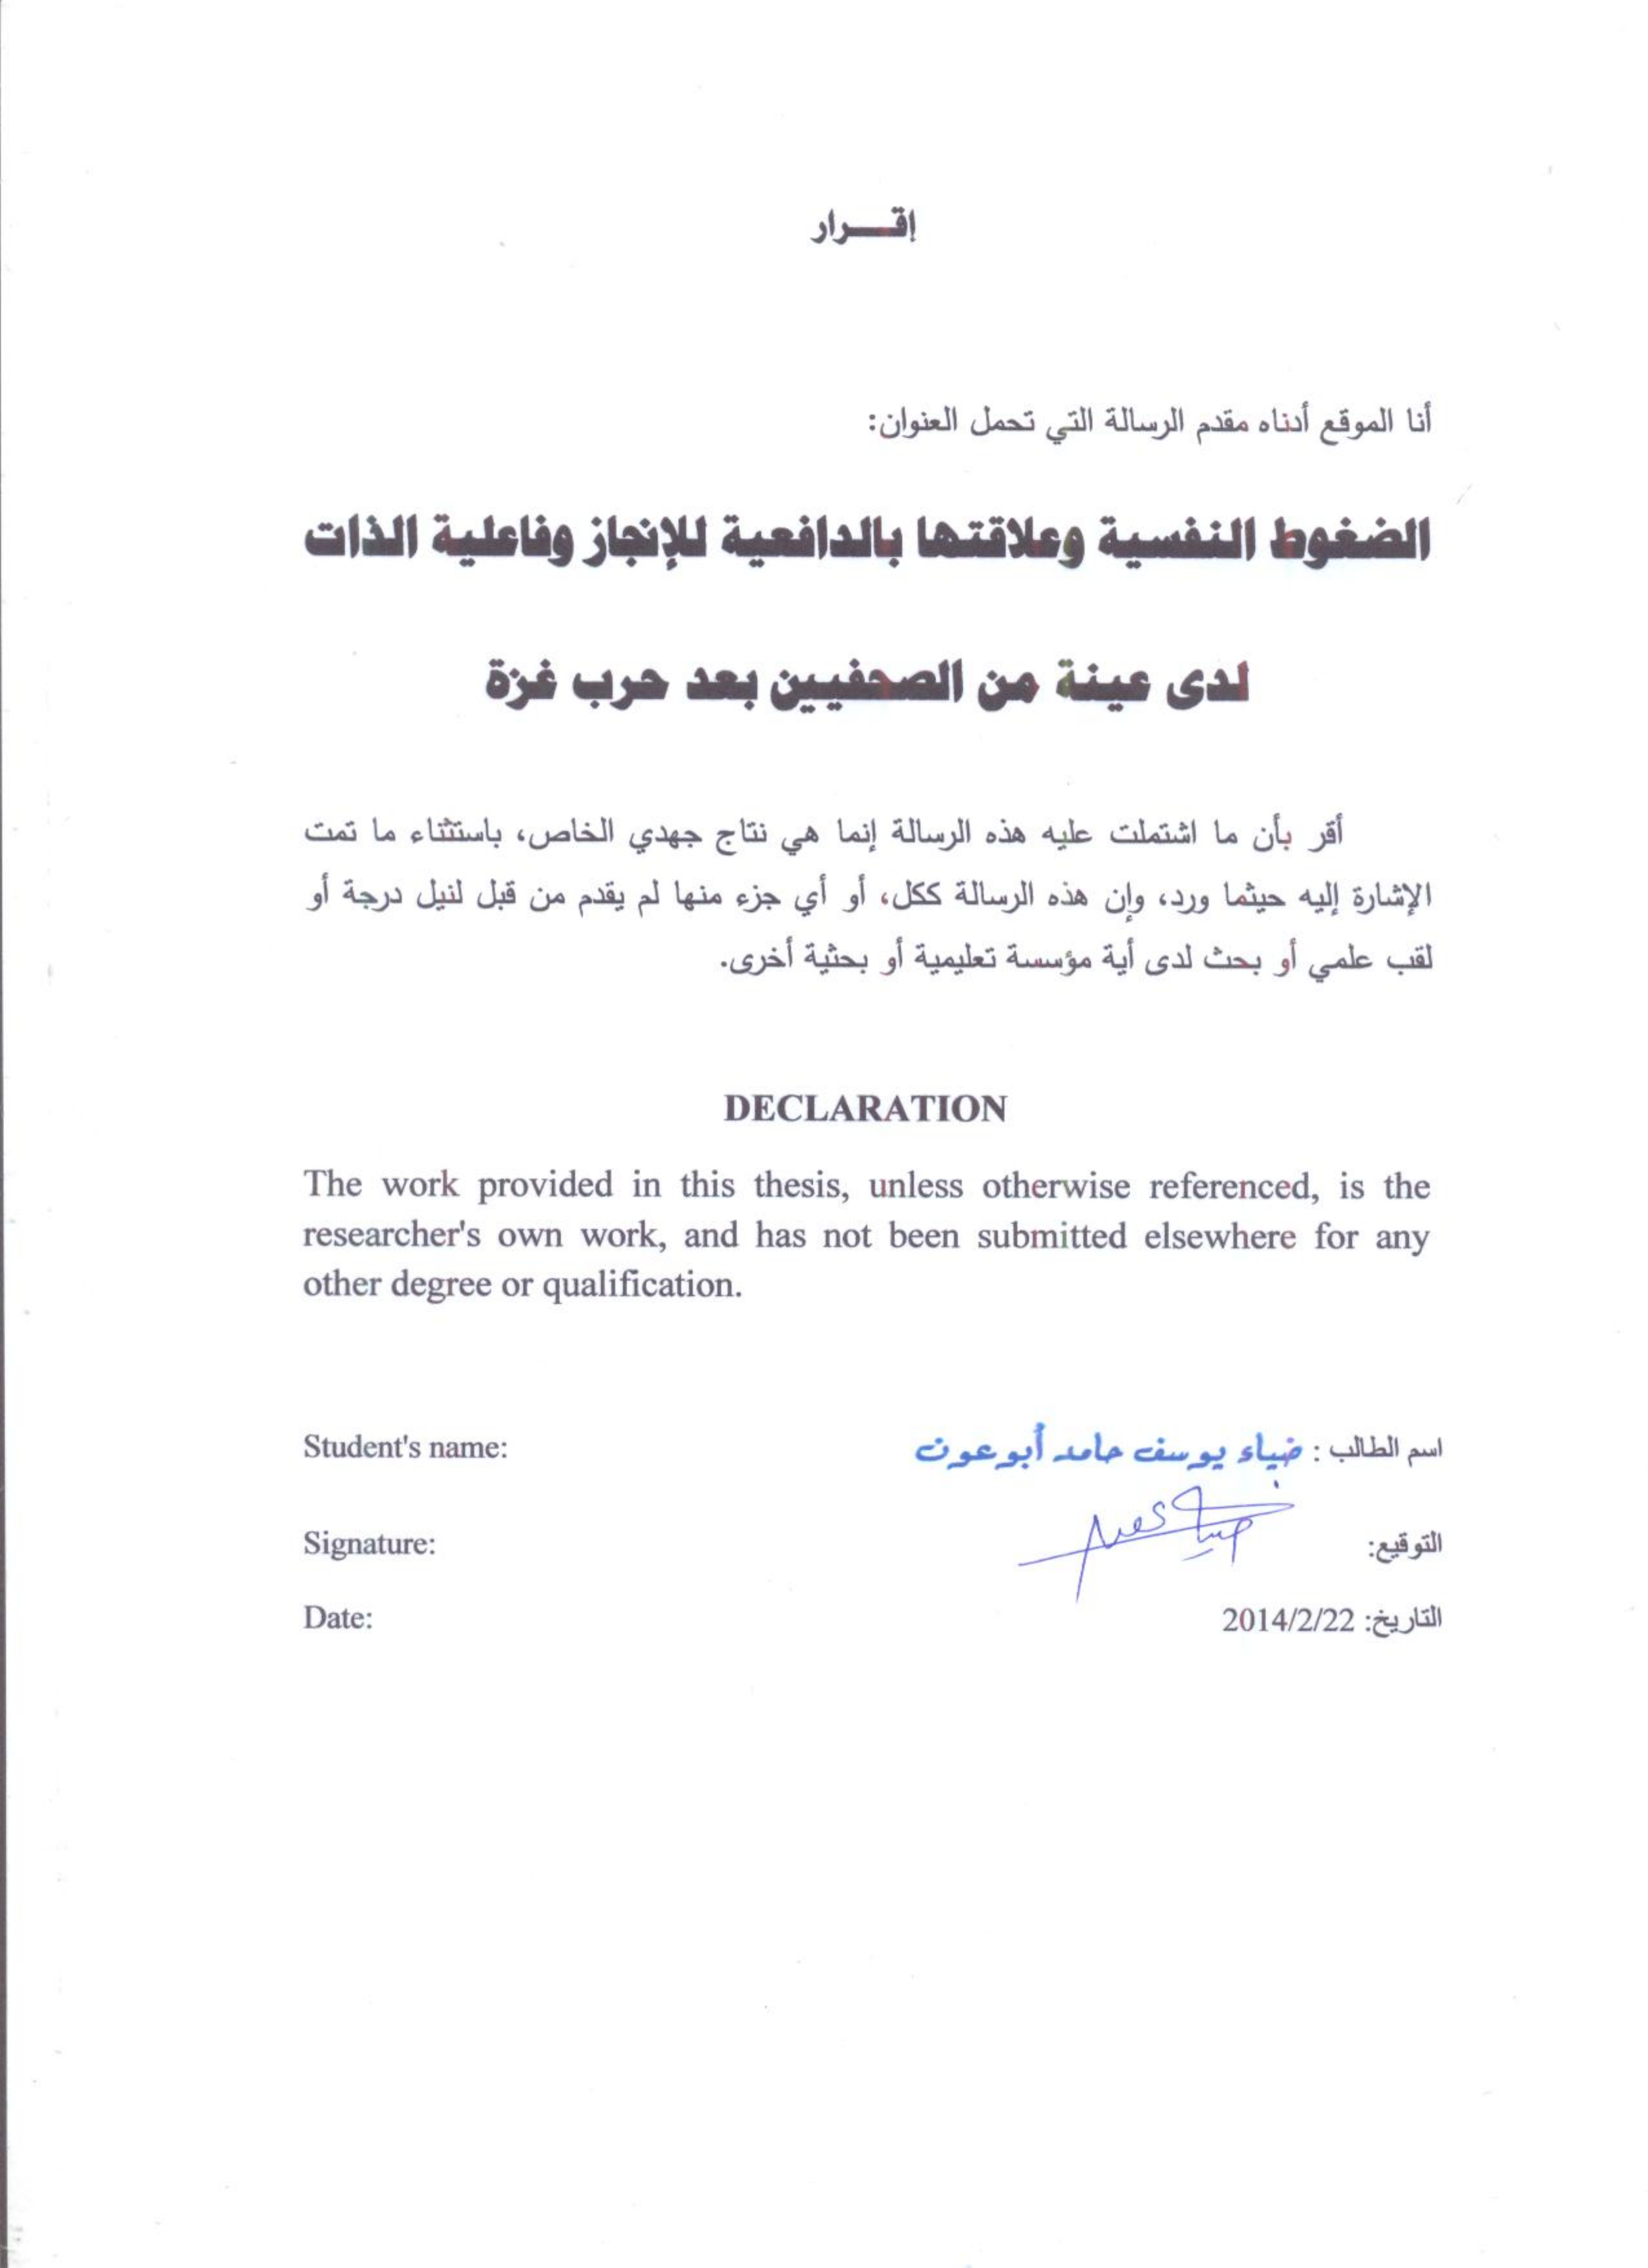 إقـــرار
أنا الموقع أدناه مقدم الرسالة التي تحمل العنوان:
الضغوط النفسية وعلاقتها بالدافعية للإنجاز وفاعلية الذات
لدى عينة من الصحفيين بعد حرب غزة
أقر بأن ما اشتملت عليه هذه الرسالة إنما هي نتاج جهدي الخاص، باستثناء ما تمت
الإشارة إليه حيثما ورد، وإن هذه الرسالة ككل، أو أي جزء منها لم يقدم من قبل لنيل درجة أو
لقب علمي أو بحث لدى أية مؤسسة تعليمية أو بحثية أخرى.
DECLARATION
The work provided in this thesis, unless otherwise referenced, is the
researcher's own work, and has not been submitted elsewhere for any
other degree or qualification.
Student's name: اسم الطالب : ضياء يوسف حامد أبو عون
Signature: التوقيع:
Date: التاريخ: 2014/2/22